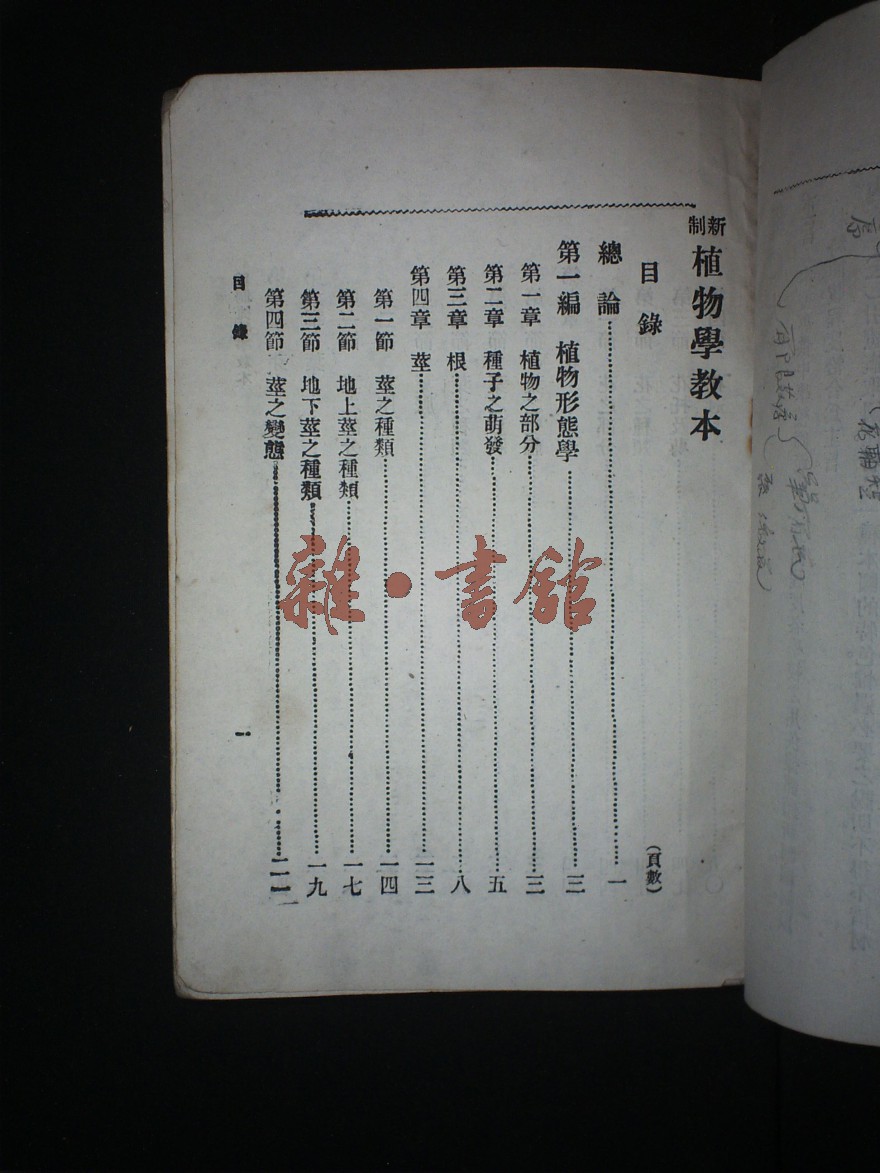 新制植物學教本
目錄 (頁數)
總論 一
第一編 植物形態學 三
第一章 植物之部分 三
第二章 種子之萌發 五
第三章 根 八
第四章 莖 一三
第一節 莖之種類 一四
第二節 地上莖之種類 一七
第三節 地下莖之種類 一九
第四節 莖之變態
目錄 一
雜·書館